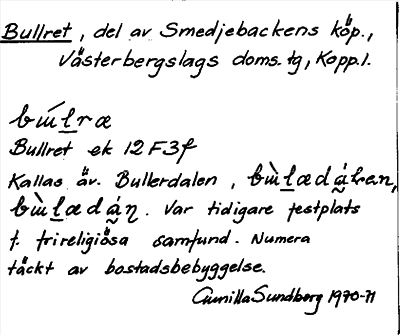 Bullret, del av Smedjebackens köp.,
Västerbergslags doms. tg, Kopp. l.
Bullret ek 12 F 3f
Kallas äv. Bullerdalen,
Var tidigare festplats
f. frireligiösa samfund. Numera
täckt av bostadsbebyggelse.
Gunilla Sundberg 1970-71